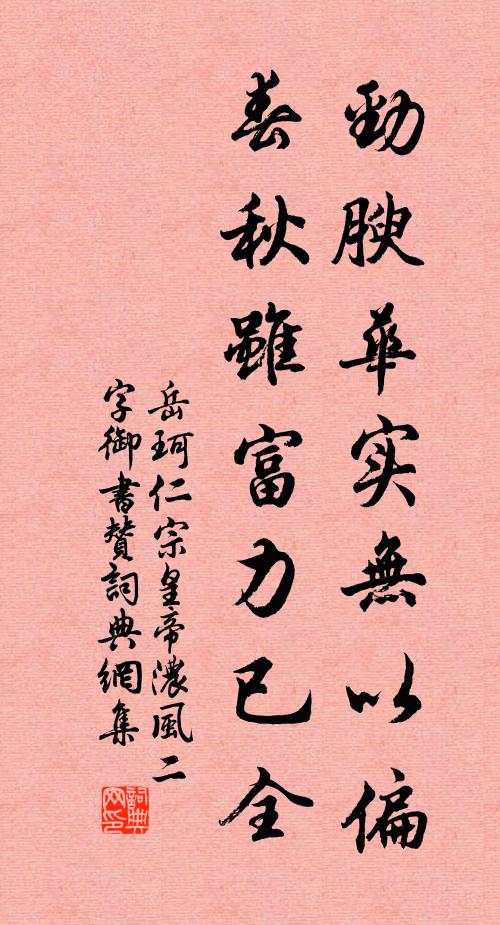 勁腴華实無以偏
春秋雖富力已全
岳珂仁宗皇帝濃風二
字御書贊詞典網集
詞典网印